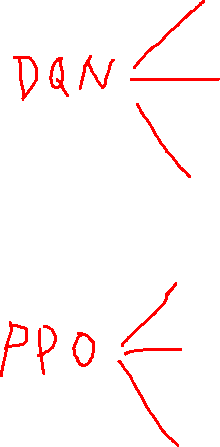 DQN
PPO